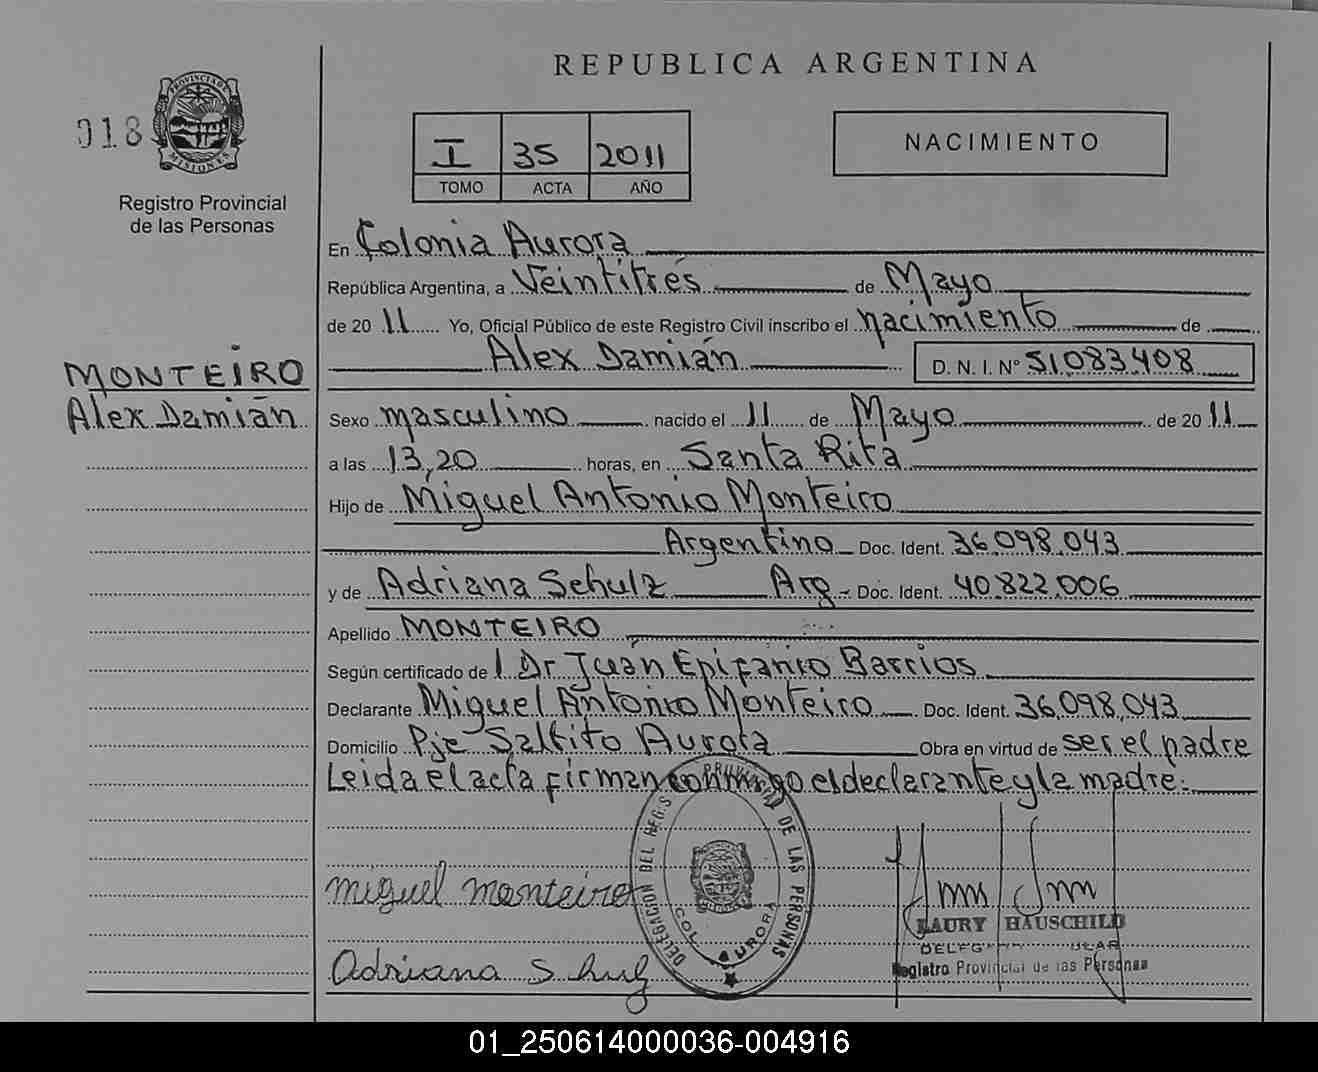 REPUBLICA ARGENTINA
018
PROVINCIA DE MISIONES
Registro Provincial
de las Personas
I 35 2011
TOMO ACTA AÑO
NACIMIENTO
MONTEIRO
Alex Damián
En Colonia Aurora
República Argentina, a Veintitrés de Mayo
de 20 11 Yo, Oficial Público de este Registro Civil inscribo el nacimiento de
Alex Damián D. N. I. Nº 51.083.408
Sexo masculino nacido el 11 de Mayo de 20 11
a las 13,20 horas, en Santa Rita
Hijo de Miguel Antonio Monteiro
Argentino Doc. Ident. 36.098.043
y de Adriana Schulz Arg- Doc. Ident. 40.822.006
Apellido MONTEIRO
Según certificado de l Dr Juán Epifanio Barrios
Declarante Miguel Antonio Monteiro Doc. Ident. 36.098.043
Domicilio Pje Saltito Aurora Obra en virtud de ser el padre
Leida el acta firman conmigo el declarante y la madre:
DELEGACION DEL REG. PROVINCIAL DE LAS PERSONAS
COL. AURORA
miguel monteiro
Adriana Schulz
LAURY HAUSCHILD
Registro Provincial de las Personas
01_250614000036-004916